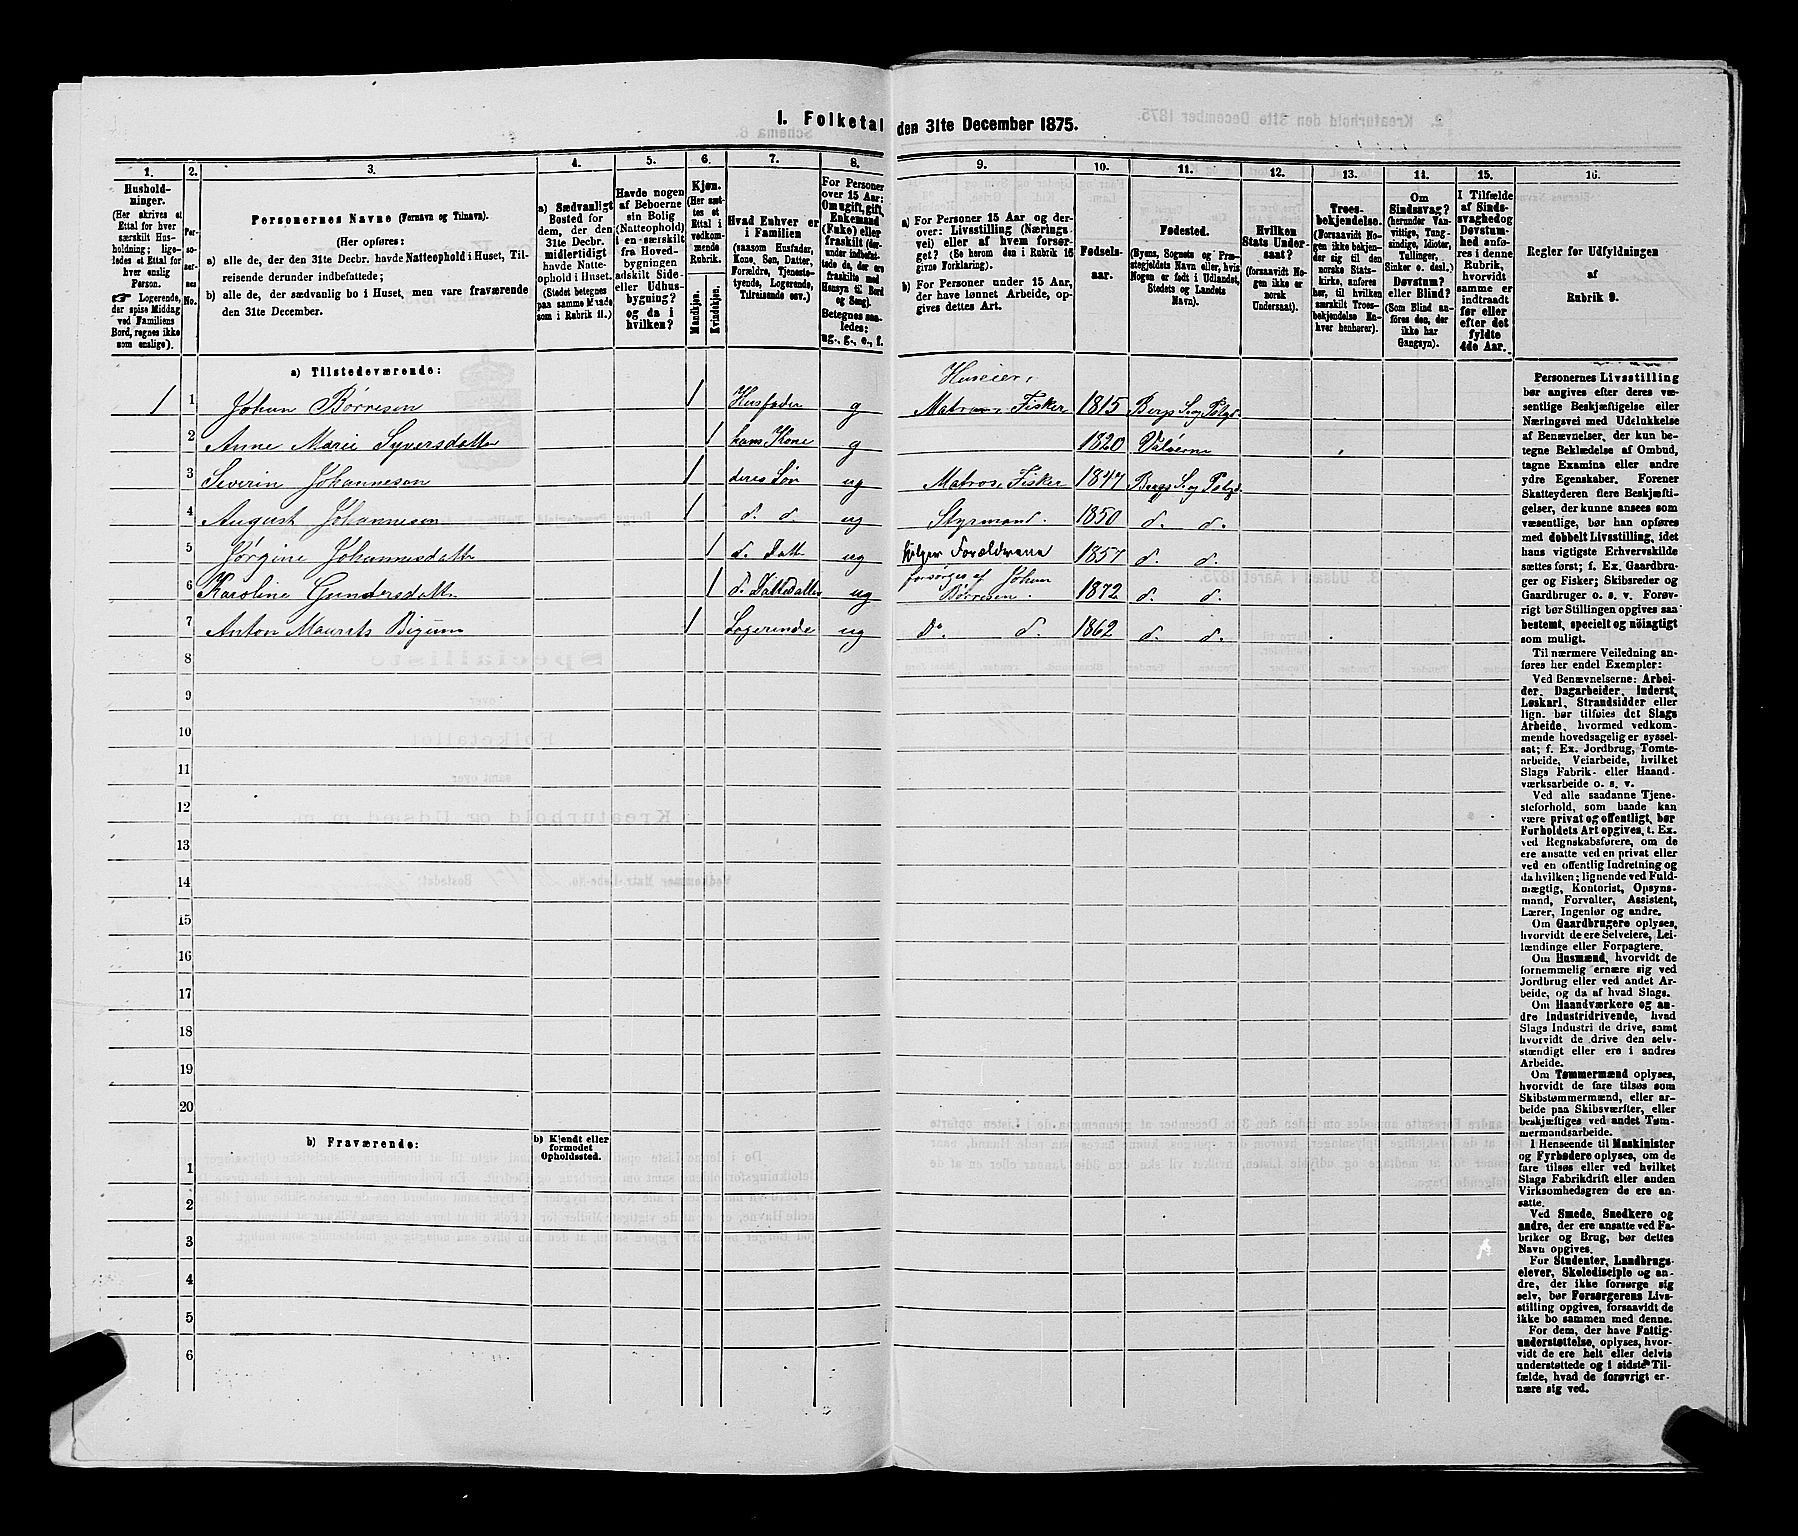 I. Folketal den 31te December 1875.
1. 2. 3. 4. 5. 6. 7. 8. 9. 10. 11. 12. 13. 14. 15. 16.
Hushold-
ninger.
(Her skrives et
Ettal for hver
særskilt Hus-
holdning; lige-
ledes et Ettal for
hver enslig
Person.
☞ Logerende,
der spise Middag
ved Familiens
Bord, regnes ikke
som enslige).
Per-
so-
ner-
nes
No.
Personernes Navne (Fornavn og Tilnavn).
(Her opføres:
a) alle de, der den 31te Decbr. havde Natteophold i Huset, Til-
reisende derunder indbefattede;
b) alle de, der sædvanlig bo i Huset, men vare fraværende
den 31te December.
a) Sædvanligt
Bosted for
dem, der den
31te Decbr.
midlertidigt
havde Natte-
ophold i Huset.
(Stedet betegnes
paa samme Maade
som i Rubrik 11.)
Havde nogen
af Beboerne
sin Bolig
(Natteophold)
i en særskilt
fra Hoved-
bygningen
adskilt Side-
eller Udhus-
bygning?
og da i
hvilken?
Kjøn.
(Her sæt-
tes et
Ettal i
vedkom-
mende
Rubrik.
Mandkjøn.
Kvindekjøn.
Hvad Enhver er
i Familien
(saasom Husfader,
Kone, Søn, Datter,
Forældre, Tjeneste-
tyende, Logerende,
Tilreisende osv.)
For Personer
over 15 Aar:
Om ugift, gift,
Enkemand
(Enke) eller
fraskilt (der-
under indbefat-
tede de, der ere
fraskilte med
Hensyn til Bord
og Seng).
Betegnes saa-
ledes:
ug., g., e., f.
a) For Personer 15 Aar og der-
over: Livsstilling (Nærings-
vei) eller af hvem forsør-
get? (Se herom den i Rubrik 16
givne Forklaring).
b) For Personer under 15 Aar,
der have lønnet Arbeide, op-
gives dettes Art.
Fødsels-
aar.
Fødested.
(Byens, Sognets og Præ-
stegjeldets Navn eller, hvis
Nogen er født i Udlandet,
Stedets og Landets
Navn).
Hvilken
Stats Under-
saat?
(forsaavidt No-
gen ikke er
norsk
Undersaat).
Troes-
bekjendelse.
(Forsaavidt No-
gen ikke bekjen-
der sig til den
norske Stats-
kirke, anføres
her, til hvilken
særskilt Troes-
bekjendelse En-
hver henhører).
Om
Sindssvag?
(herunder Van-
vittige, Tung-
sindige, Idioter,
Tullinger,
Sinker o. desl.)
Døvstum?
eller Blind?
(Som Blind an-
føres den, der
ikke har
Gangsyn).
I Tilfælde
af Sinds-
svaghed og
Døvstum-
hed anfø-
res i denne
Rubrik,
hvorvidt
samme er
indtraadt
før eller
efter det
fyldte
4de Aar.
Regler for Udfyldningen
af
Rubrik 9.
a) Tilstedeværende:
Huseier,
1 1 Johan Børresen 1 Husfader g Matros, Fisker 1815
2 Anne Marie Syversdatter 1 hans Kone g 1820
3 Severin Johannesen 1 deres Søn ug Matros, Fisker 1847
4 August Johannesen 1 d. d. ug Styrmand. 1850 d. d.
5 Jørgine Johannesdatter 1 d. Datt ug hjelper Forældrene 1857 d. d.
forsørges af Johan
6 Karoline Gundersdatter 1 ug Børresen. 1872 d. d.
7 Anton Maurits Bigum 1 Logerende ug Do. d. 1862 d. d.
8
9
10
11
12
13
14
15
16
17
18
19
20
b) Fraværende:
b) Kjendt eller
formodet
Opholdssted.
1
2
3
4
5
6
Personernes Livsstilling
bør angives efter deres væ-
sentlige Beskjæftigelse eller
Næringsvei med Udelukkelse
af Benævnelser, der kun be-
tegne Beklædelse af Ombud,
tagne Examina eller andre
ydre Egenskaber. Forener
Skatteyderen flere Beskjæfti-
gelser, der kunne ansees som
væsentlige, bør han opføres
med dobbelt Livsstilling, idet
hans vigtigste Erhvervskilde
sættes først; f. Ex. Gaardbru-
ger og Fisker; Skibsreder og
Gaardbruger o. s. v. Forøv-
rigt bør Stillingen opgives saa
bestemt, specielt og nöiagtigt
som muligt.
Til nærmere Veiledning an-
føres her endel Exempler:
Ved Benævnelserne: Arbei-
der, Dagarbeider, Inderst,
Løskarl, Strandsidder eller
lign. bør tilføies det Slags
Arbeide, hvormed vedkom-
mende hovedsagelig er syssel-
sat; f. Ex. Jordbrug, Tomte-
arbeide, Veiarbeide, hvilket
Slags Fabrik- eller Haand-
værksarbeide o. s. v.
Ved alle saadanne Tjene-
steforhold, som baade kan
være privat og offentligt, bør
Forholdets Art opgives, t. Ex.
ved Regnskabsførere, om de
ere ansatte ved en privat eller
ved en offentlig Indretning og
da hvilken; lignende ved Fuld-
mægtig, Kontorist, Opsyns-
mand, Forvalter, Assistent,
Lærer, Ingeniør og andre.
Om Gaardbrugere oplyses,
hvorvidt de ere Selveiere, Lei-
lændinge eller Forpagtere.
Om Husmænd, hvorvidt de
fornemmelig ernære sig ved
Jordbrug eller ved andet Ar-
beide, og da af hvad Slags.
Om Haandværkere og an-
dre Industridrivende, hvad
Slags Industri de drive, samt
hvorvidt de drive den selv-
stændigt eller ere i andres
Arbeide.
Om Tømmermænd oplyses,
hvorvidt de fare tilsøs som
Skibstømmermænd, eller ar-
beide paa Skibsværfter, eller
beskjæftiges ved andet Tøm-
mermandsarbeide.
I Henseende til Maskinister
og Fyrbødere oplyses, om de
fare tilsøs eller ved hvilket
Slags Fabrikdrift eller anden
Virksomhedsgren de ere an-
satte.
Ved Smede, Snedkere og
andre, der ere ansatte ved Fa-
briker og Brug, bør dettes
Navn opgives.
For Studenter, Landbrugs-
elever, Skoledisciple og an-
dre, der ikke forsørge sig
selv, bør Forsørgerens Livs-
stilling opgives, forsaavidt de
ikke bo sammen med denne.
For dem, der have Fattig-
understøttelse, oplyses, hvor-
vidt de ere helt eller delvis
understøttede og i sidste Til-
fælde, hvad de forøvrigt er-
nære sig ved.